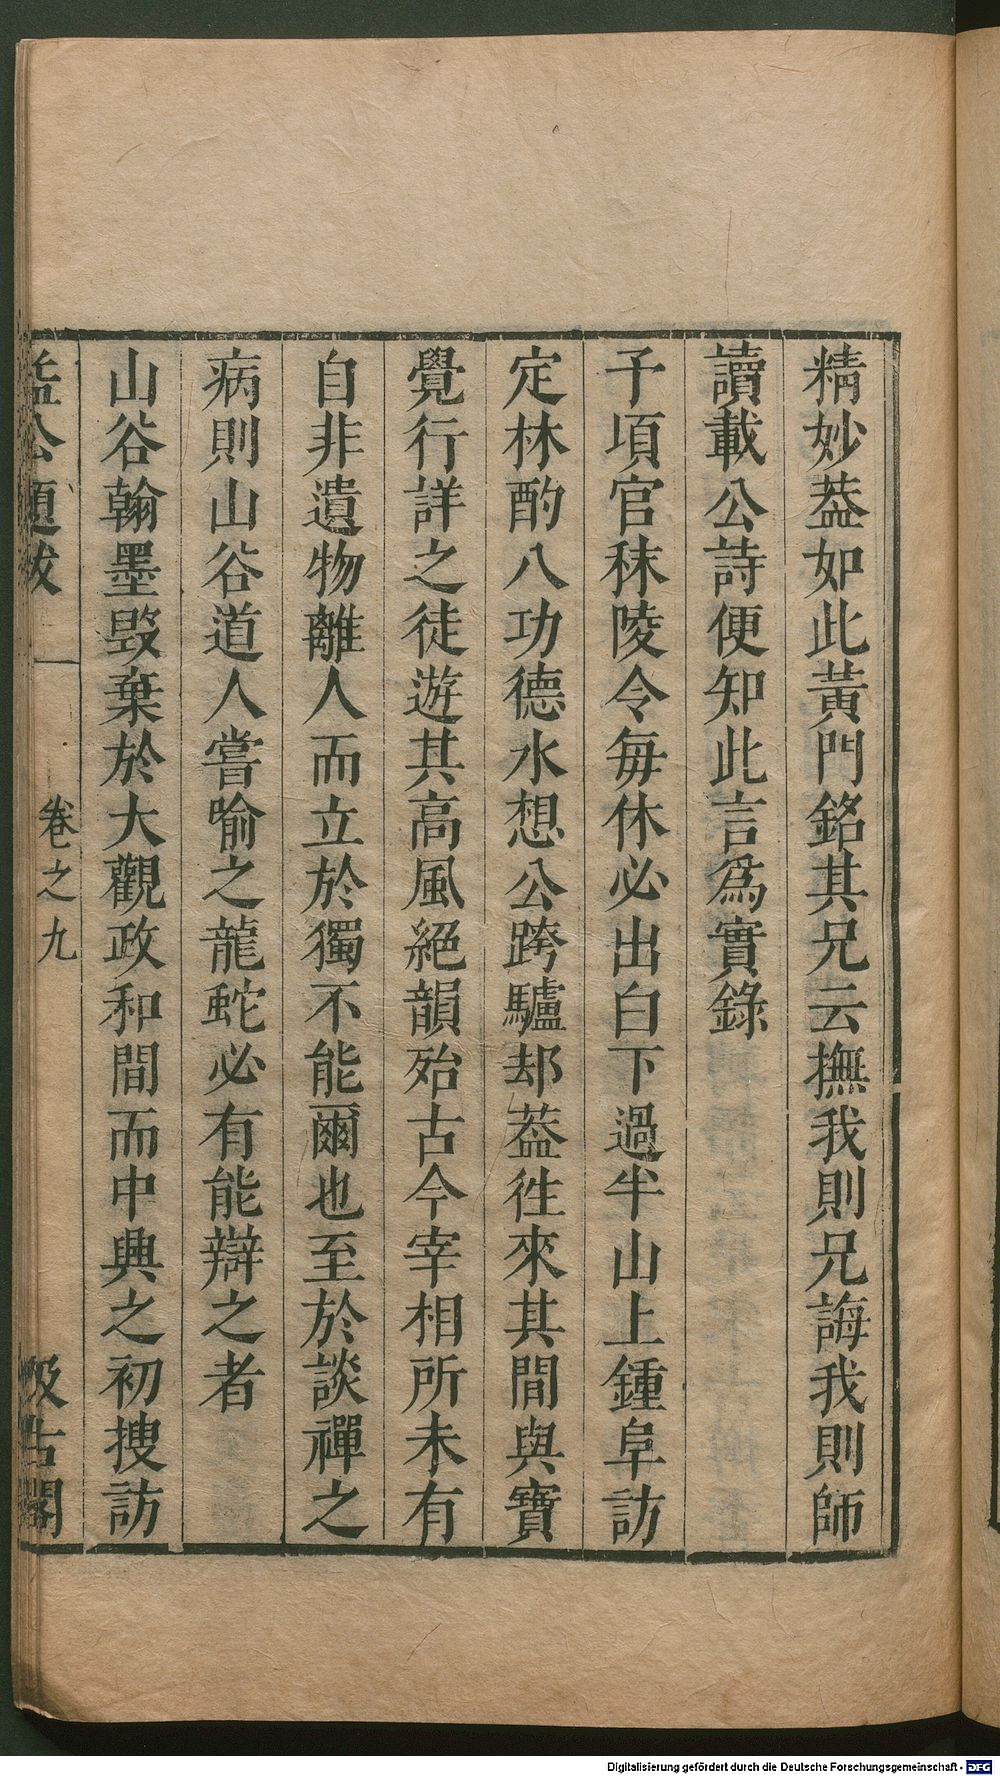 精妙葢如此黃門銘其兄云撫我則兄誨我則師
讀載公詩便知此言爲實錄
予項官秣陵令每休必出白下過半山上鍾阜訪
定林酌八功德水想公跨驢却葢徃來其間與寶
覺行詳之徒遊其高風絕韻殆古今宰相所未有
自非遺物離人而立於獨不能爾也至於談禪之
病則山谷道人嘗喻之龍蛇必有能辯之者
山谷翰墨毀棄於大觀政和間而中興之初搜訪
益公題跋 卷之九 汲古閣
Digitalisierung gefördert durch die Deutsche Forschungsgemeinschaft - DFG